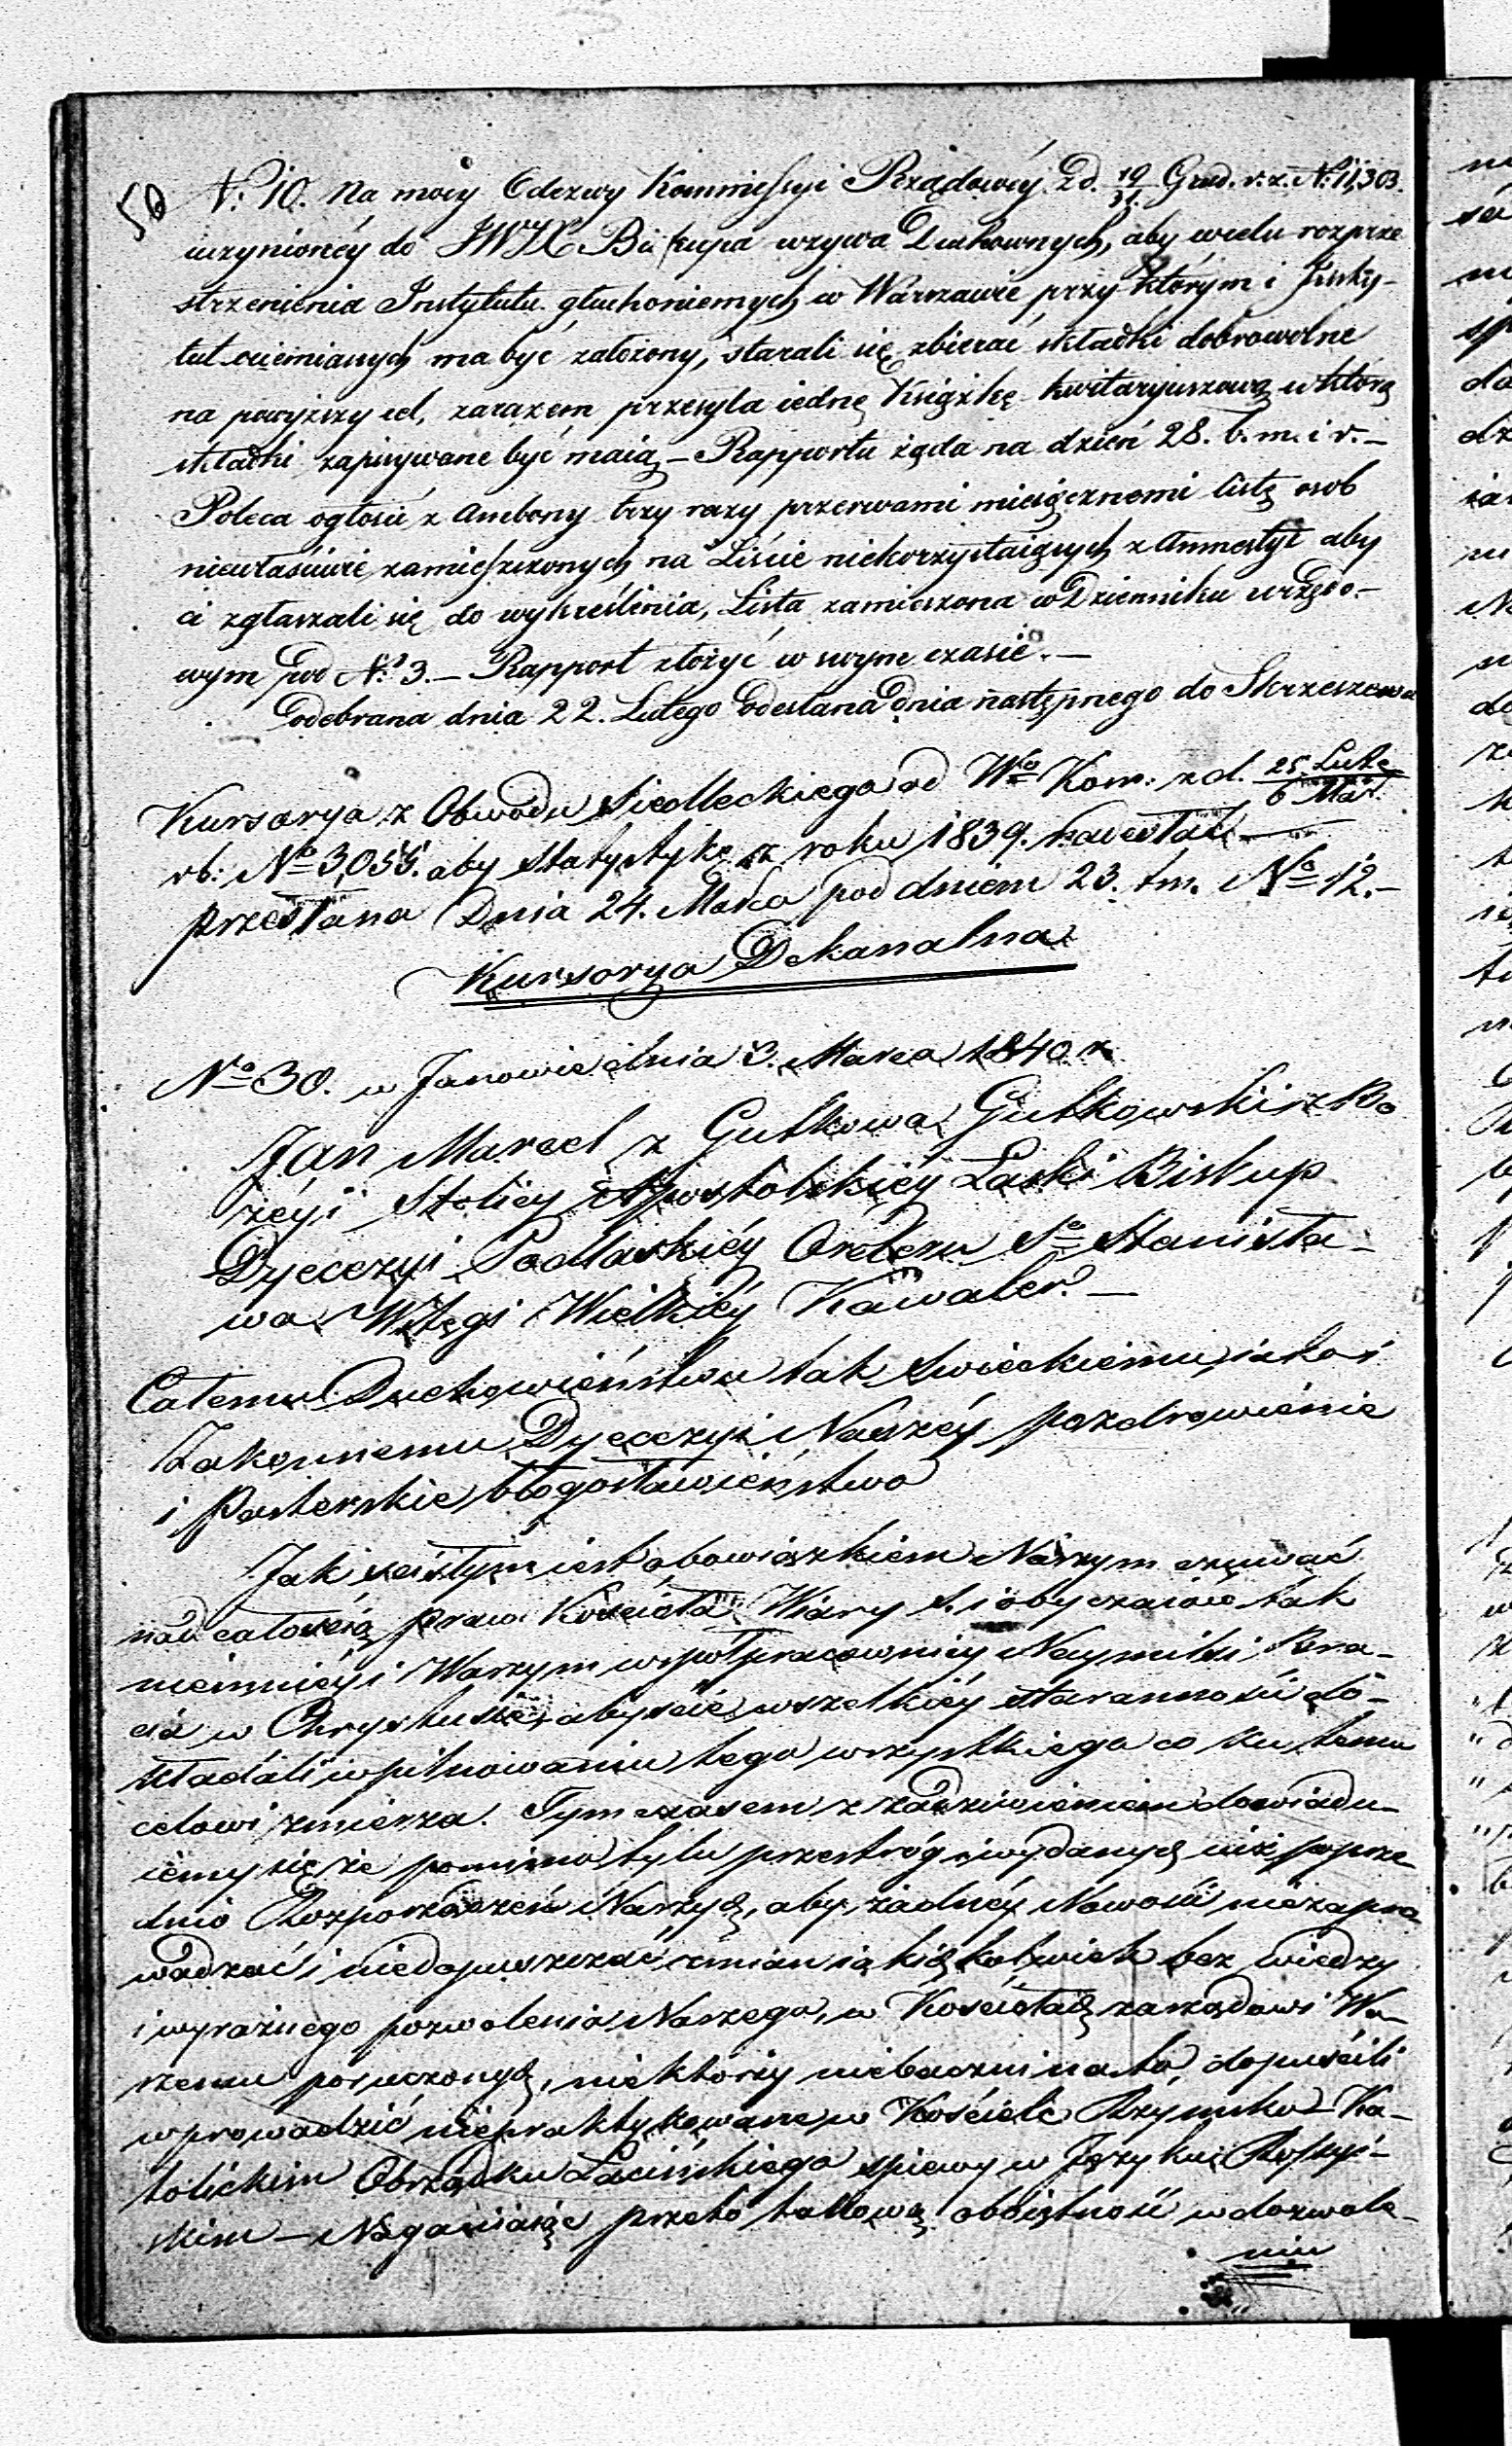 50
N: 10. Na mocy Odezwy Kommissyi Rządowéy z d. 19/31 Grud. r. z. N: 11,303.
uczynionéy do JWJX Biskupa wzywa Duchownych, aby w celu rozprze
strzenienia Instytutu głuchoniemych w Warszawie przy którym i Insty-
tut ociemniałych ma być założony, starali się zbierać składki dobrowolne
na powyższy cel, zarazem przesyła iednę Książkę kwitaryuszową w którą
składki zapisywane być maią – Rapportu żąda na dzień 28. b. m. i r. –
Poleca ogłosić z Ambony trzy razy przerwami miesięcznemi listę osob
niewłaściwie zamieszczonych na Liście niekorzystaiących z Amnestyi aby
ci zgłaszali się do wykreślenia, Lista zamieszona w Dzienniku urzędo-
wym pod N: 3. – Rapport złożyć w swym czasie. –
Odebrana dnia 22. Lutego Odesłana Dnia następnego do Skrzeszewa
Kursorya z Obwodu Siedleckiego od Wgo Kom: z d. 25 Lute/6 Mar.
rb: No 3,055. aby statystykę z roku 1839. nadesłać –
przesłana Dnia 24. Marca pod dniem 23. t m. No 12. –
Kursorya Dekanalna
No 30. w Janowie dnia 3. Marca 1840 r.
Jan Marcel z Gutkowa Gutkowski z Bo
żéy i Stolicy Apostolskiéy Łaski Biskup
Dyecezyi Podlaskiéy Orderu So Stanisła-
wa Wstęgi Wielkiéy Kawaler. –
Całemu Duchowieństwu tak Swieckiemu, iako i
Zakonnemu Dyecezyi Naszéy pozdrowienie
i Pasterskie błogosławieństwo
Jak scisłym iest obowiązkiem Naszym czuwać
nad całością praw Kościoła Wiary S. i obyczaiów tak
niemniéy i Waszym współpracownicy Naymilsi Bra-
cia w Chrystusie, abyście wszelkiéy staranności do-
kładali w pilnowaniu tego wszystkiego co ku temu
celowi zmierza. Tymczasem z zadziwieniem dowiadu-
iemy się że pomimo tylu przestróg i wydanych iuż poprze-
dnio Rozporządzeń Naszych, aby żadnéy Nowości niezapro
wadzać i niedopuszczać zmian iakichkolwiek bez wiedzy
i wyraźnego pozwolenia Naszego, w Kościołach zarządowi Wa-
szemu poruczonych, niektórzy niebaczni na to, dopuścili
wprowadzić niepraktykowane w Kościele Rzymsko-Ka-
tolickim Obrządku Łacińskiego spiewy w Języku Rossyi-
skim – Naganiaiąc przeto takową oboiętność w dozwole-
niu